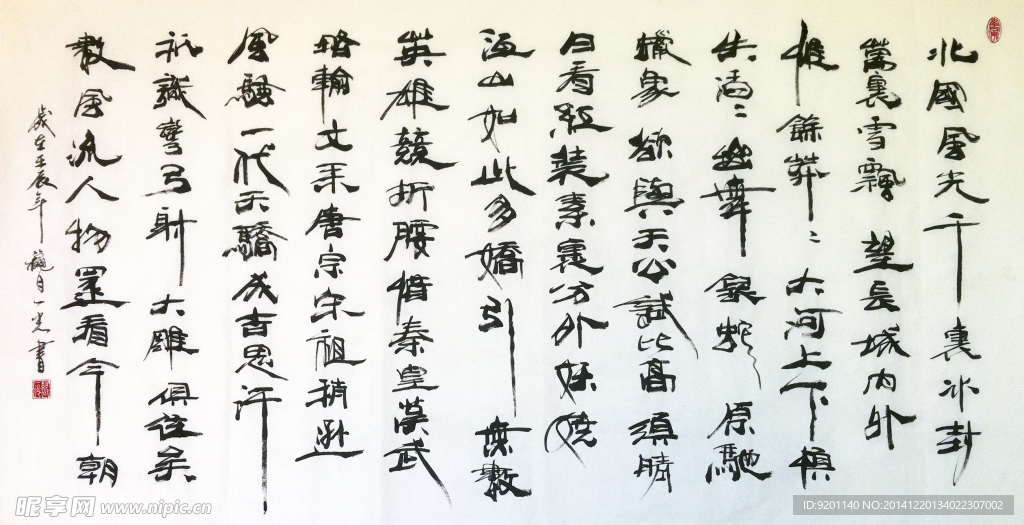 北國風光千裏冰封
萬裏雪飄望長城内外
惟餘莽〻大河上下頓
失滔〻山舞銀蛇原馳
蠟象欲與天公試比高須晴
日看紅裝素裹分外妖嬈
江山如此多嬌引無數
英雄競折腰惜秦皇漢武
略輸文采唐宗宋祖稍遜
風騷一代天驕成吉思汗
祇識彎弓射大雕俱往矣
數風流人物還看今朝
歲在壬辰年龍月一光書
昵享网 www.nipic.cn
ID:9201140 NO:20141220134022307002